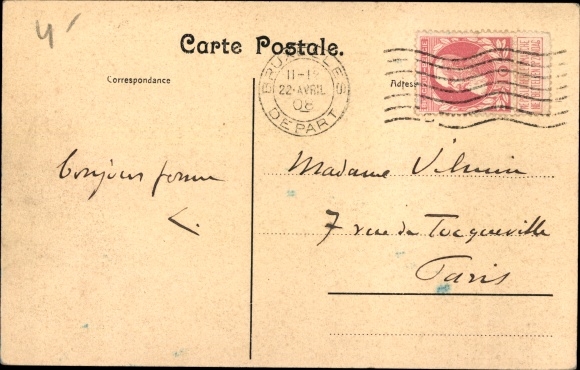 4
Carte Postale.
Correspondance
Adresse
BRUXELLES
11-1
22·AVRIL
08
DEPART
Bonjour
L.
Madame Vilmin
7 rue de Tocqueville
Paris